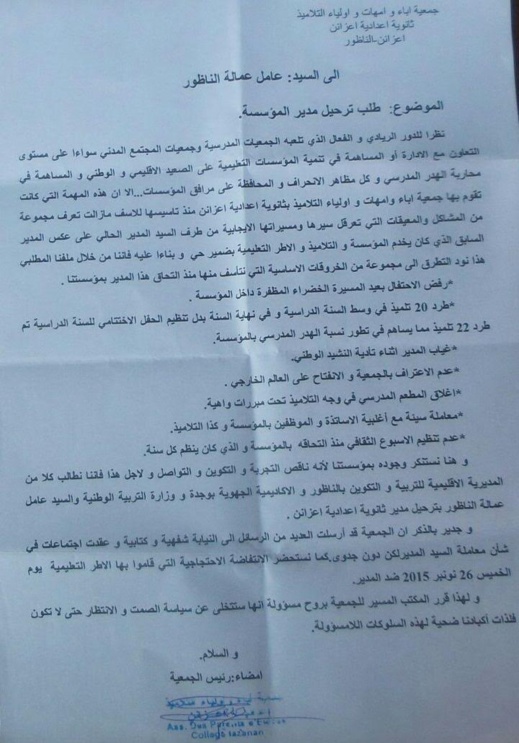 جمعية اباء و امهات و اولياء التلاميذ
ثانوية اعدادية اعزانن
اعزانن-الناظور
الى السيد: عامل عمالة الناظور
الموضوع: طلب ترحيل مدير المؤسسة.
نظرا للدور الريادي و الفعال الذي تلعبه الجمعيات المدرسية وجمعيات المجتمع المدني سواءا على مستوى
التعاون مع الادارة أو المساهمة في تنمية المؤسسات التعليمية على الصعيد الاقليمي و الوطني و المساهمة في
محاربة الهدر المدرسي و كل مظاهر الانحراف و المحافظة على مرافق المؤسسات...الا ان هذه المهمة التي كانت
تقوم بها جمعية اباء وامهات و اولياء التلاميذ بثانوية اعدادية اعزانن منذ تاسيسها للاسف مازالت تعرف مجموعة
من المشاكل والمعيقات التي تعرقل سيرها ومسيراتها الايجابية من طرف السيد المدير الحالي على عكس المدير
السابق الذي كان يخدم المؤسسة و التلاميذ و الاطر التعليمية بضمير حي و بناءا عليه فاننا من خلال ملفنا المطلبي
هذا نود التطرق الى مجموعة من الخروقات الاساسية التي نتأسف منها منذ التحاق هذا المدير بمؤسستنا .
*رفض الاحتفال بعيد المسيرة الخضراء المظفرة داخل المؤسسة .
*طرد 20 تلميذ في وسط السنة الدراسية و في نهاية السنة بدل تنظيم الحفل الاختتامي للسنة الدراسية تم
طرد 22 تلميذ مما يساهم في تطور نسبة الهدر المدرسي بالمؤسسة.
*غياب المدير اثناء تأدية النشيد الوطني.
*عدم الاعتراف بالجمعية و الانفتاح على العالم الخارجي .
*اغلاق المطعم المدرسي في وجه التلاميذ تحت مبررات واهية.
*معاملة سيئة مع أغلبية الاساتذة و الموظفين بالمؤسسة و كذا التلاميذ.
*عدم تنظيم الاسبوع الثقافي منذ التحاقه بالمؤسسة و الذي كان ينظم كل سنة.
و هنا نستنكر وجوده بمؤسستنا لأنه ناقص التجربة و التكوين و التواصل و لاجل هذا فاننا نطالب كلا من
المديرية الاقليمية للتربية و التكوين بالناظور و الاكاديمية الجهوية بوجدة و وزارة التربية الوطنية والسيد عامل
عمالة الناظور بترحيل مدير ثانوية اعدادية اعزانن .
و جدير بالذكر ان الجمعية قد أرسلت العديد من الرسائل الى النيابة شفهية و كتابية و عقدت اجتماعات في
شأن معاملة السيد المديرلكن دون جدوى.كما نستحضر الانتفاضة الاحتجاجية التي قاموا بها الاطر التعليمية يوم
الخميس 26 نونبر 2015 ضد المدير.
و لهذا قرر المكتب المسير للجمعية بروح مسؤولة انها ستتخلى عن سياسة الصمت و الانتظار حتى لا تكون
فلذات أكبادنا ضحية لهذه السلوكات اللامسؤولة.
و السلام.
امضاء:رئيس الجمعية
Ass. Des